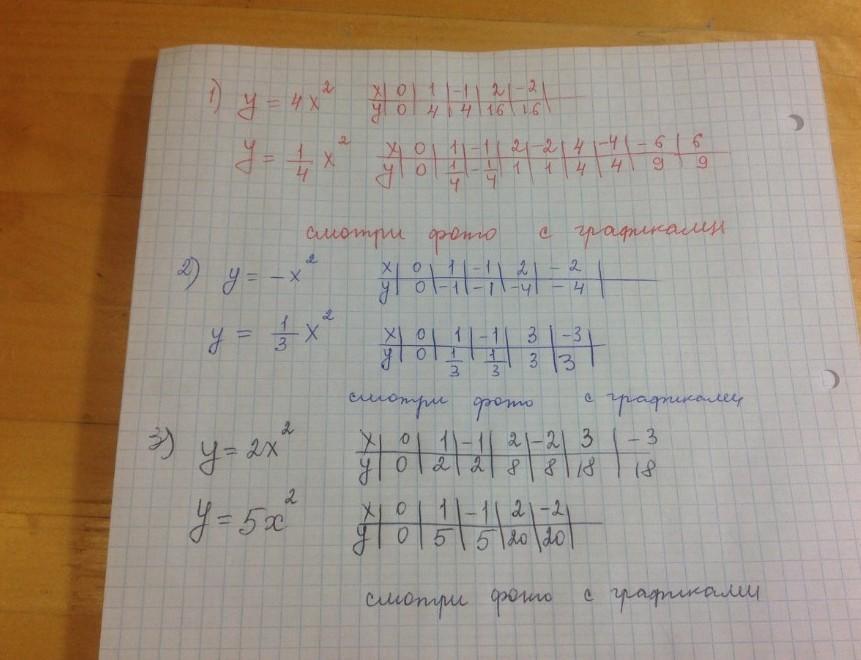 1) y = 4x² x | 0 | 1 | -1 | 2 | -2 |
y | 0 | 4 | 4 | 16 | 16 |
y = 1/4 x² x | 0 | 1 | -1 | 2 | -2 | 4 | -4 | -6 | 6
y | 0 | 1/4 | -1/4 | 1 | 1 | 4 | 4 | 9 | 9
смотри фото с графиками
2) y = -x² x | 0 | 1 | -1 | 2 | -2 |
y | 0 | -1 | -1 | -4 | -4 |
y = 1/3 x² x | 0 | 1 | -1 | 3 | -3 |
y | 0 | 1/3 | 1/3 | 3 | 3 |
смотри фото с графиками
3) y = 2x² x | 0 | 1 | -1 | 2 | -2 | 3 | -3
y | 0 | 2 | 2 | 8 | 8 | 18 | 18
y = 5x² x | 0 | 1 | -1 | 2 | -2 |
y | 0 | 5 | 5 | 20 | 20 |
смотри фото с графиками